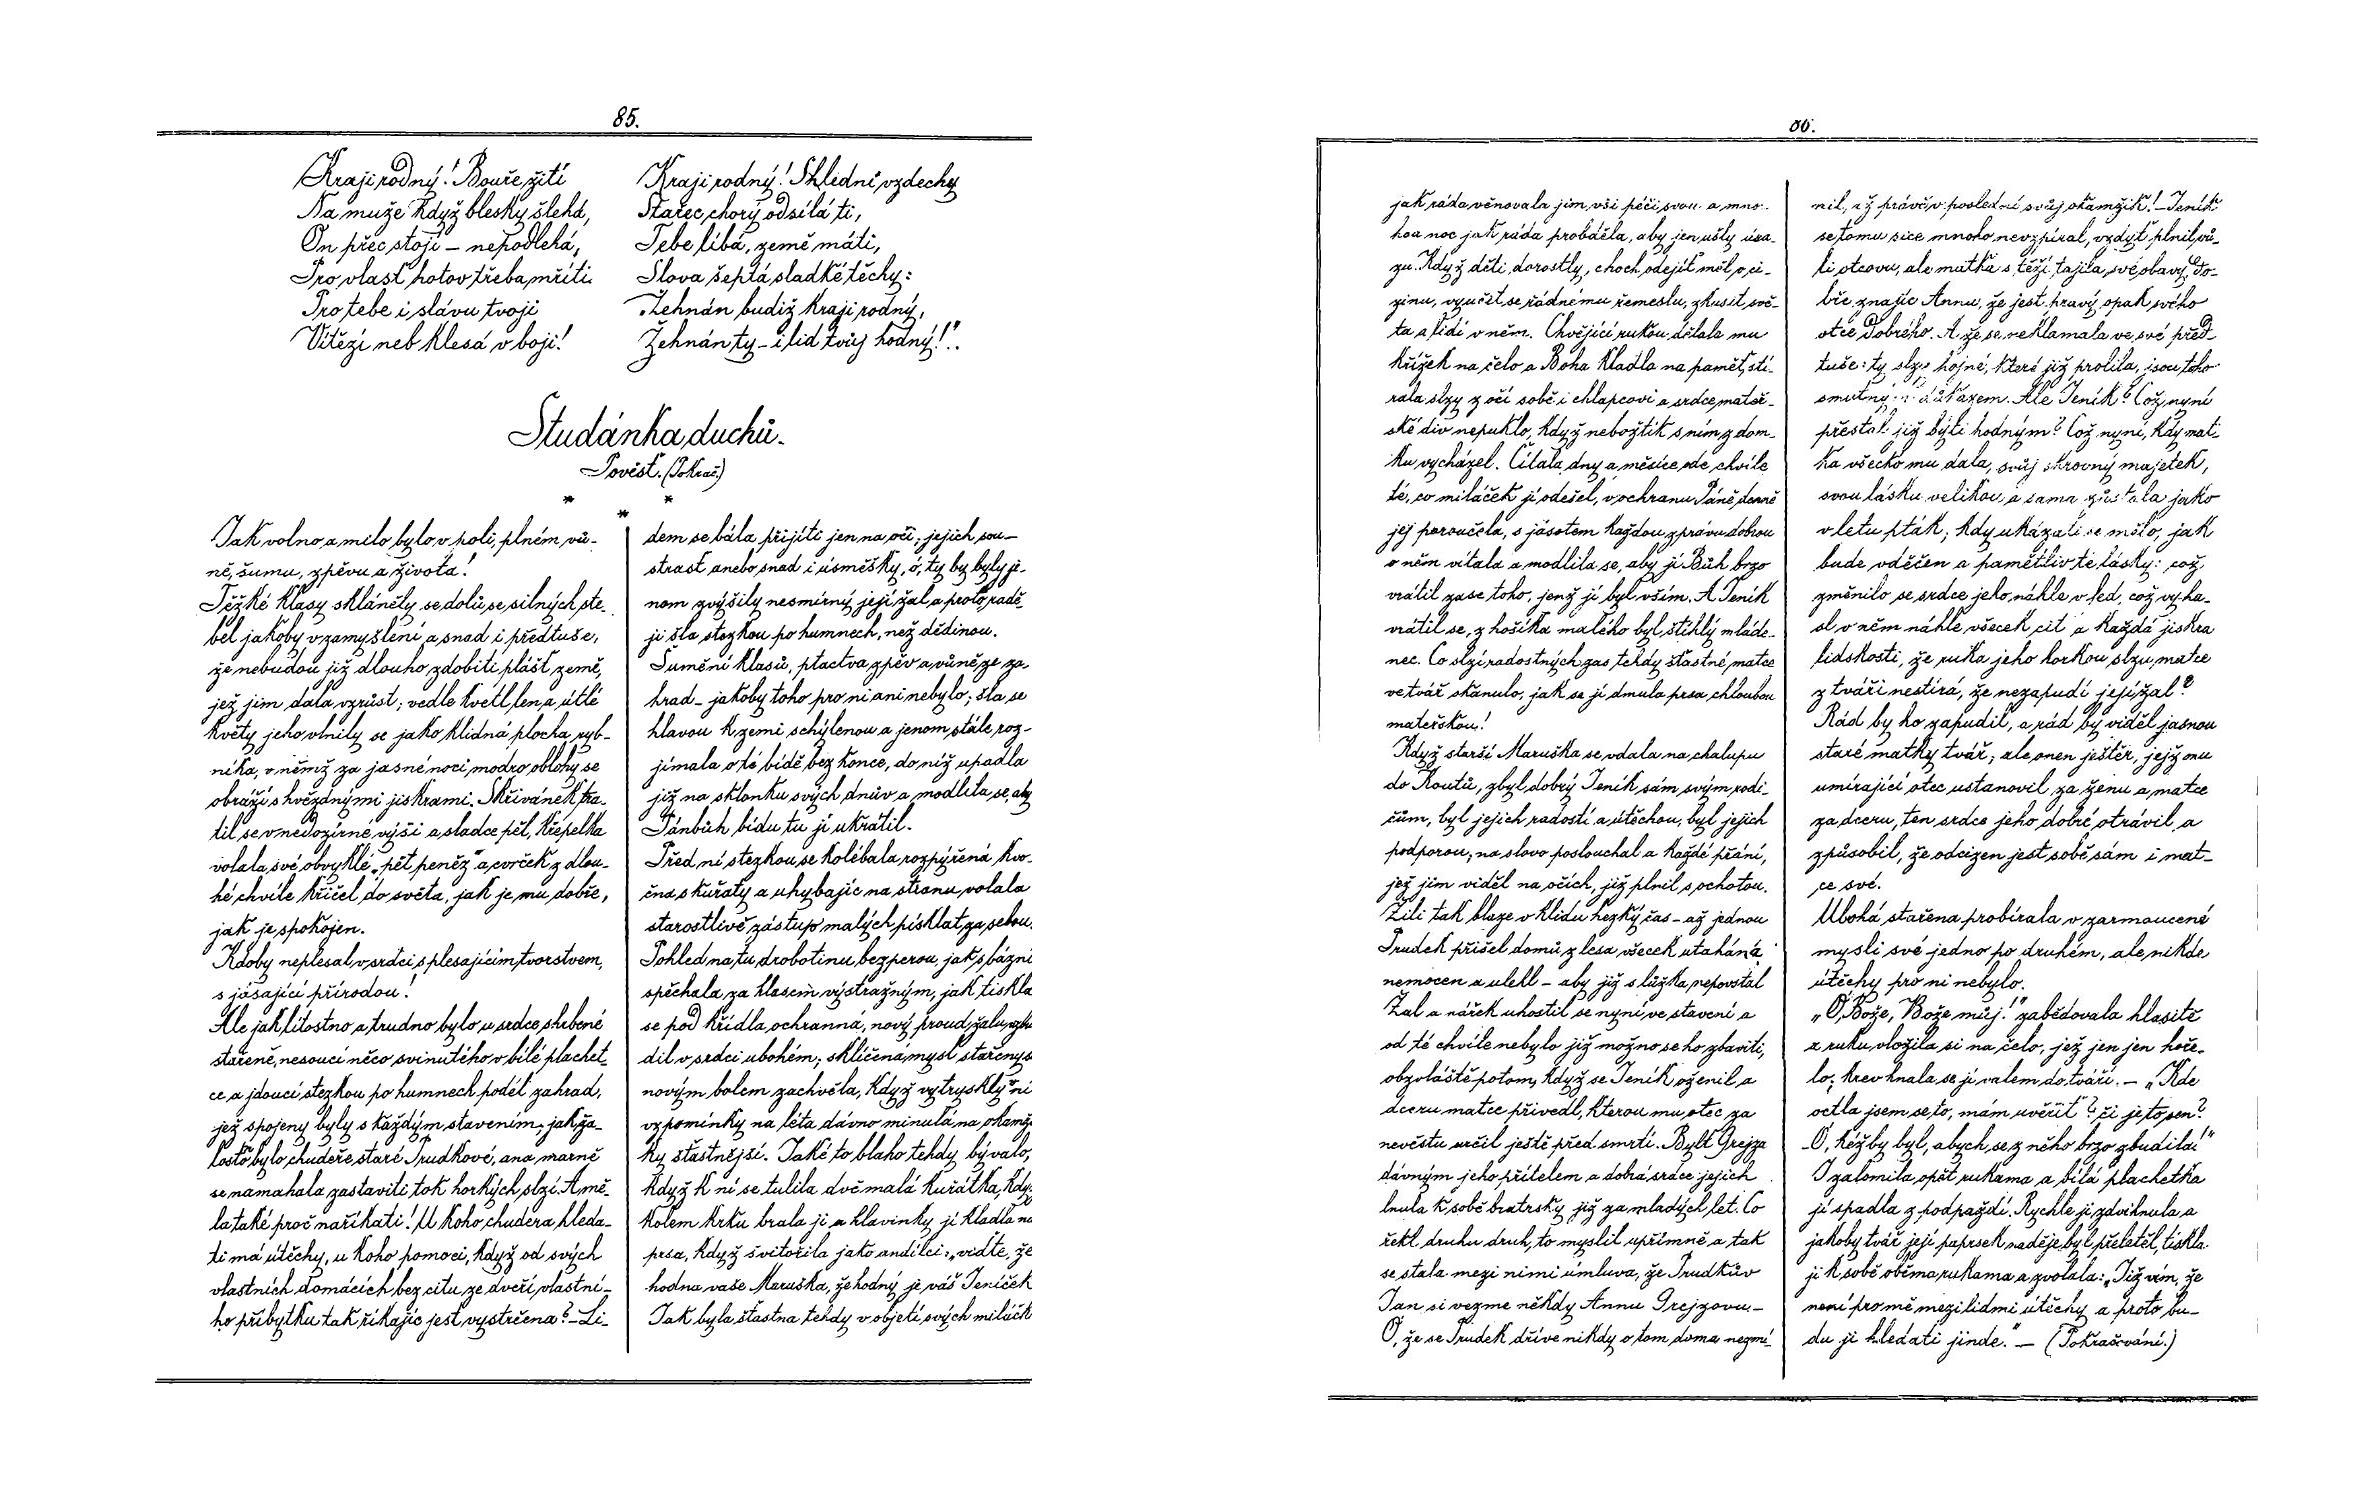 85.
Kraji rodný! Bouře žití
Na muže když blesky šlehá,
On přec stojí – nepodlehá,
Pro vlasť hotov třeba mříti.
Pro tebe i slávu tvoji
Vítězí neb klesá v boji!
Kraji rodný! Shlédni vzdechy
Stařec chorý odsílá ti,
Tebe líbá, země máti,
Slova šeptá sladké těchy:
„Žehnán budiž kraji rodný,
Žehnán ty – i lid tvůj hodný!“..
Studánka duchů.
Pověsť. (Pokrač.)
* * *
Jak volno a milo bylo v poli, plném vů-
ně, šumu, zpěvu a života!
Těžké klasy skláněly se dolů se silných ste-
bel jakoby v zamyšlení a snad i předtuše,
že nebudou již dlouho zdobiti plášť země,
jež jim dala vzrůst; vedle kvetl len a útlé
květy jeho vlnily se jako klidná plocha ryb-
níka, v němž za jasné noci modro oblohy se
obráží s hvězdnými jiskrami. Skřivánek tra-
til se v nedozírné výši a sladce pěl, křepelka
volala své obvyklé „pět peněz“ a cvrček z dlou-
hé chvíle křičel do světa, jak je mu dobře,
jak je spokojen.
Kdoby neplesal v srdci s plesajícím tvorstvem,
s jásající přírodou!
Ale jak lítostno a trudno bylo u srdce shrbené
stařeně, nesoucí něco svinutého v bílé plachet-
ce a jdoucí stezkou po humnech podél zahrad,
jež spojeny byly s každým stavením; jak ža-
lostó bylo chudeře staré Trudkové, ana marně
se namahala zastaviti tok horkých slzí. A mě-
la také proč naříkati! U koho, chudera hleda-
ti má útěchy, u koho pomoci, když od svých
vlastních domácích bez citu ze dveří vlastní-
ho příbytku tak říkajíc jest vystrčena? – Li-
dem se bála přijíti jen na oči; jejich sou-
strast anebo snad i úsměšky, ó, ty by byly je-
nom zvýšily nesmírný její žal a proto radě-
ji šla stezkou po humnech, než dědinou.
Šumění klasů, ptactva zpěv a vůně ze za-
hrad – jakoby toho pro ni ani nebylo; šla se
hlavou k zemi schýlenou a jenom stále roz-
jímala o té bídě bez konce, do níž upadla
již na sklonku svých dnův a modlila se, aby
Pánbůh bídu tu jí ukrátil.
Před ní stezkou se kolébala rozpýřená kvo-
čna s kuřaty a uhybajíc na stranu volala
starostlivě zástup malých písklat za sebou.
Pohled na tu drobotinu bezperou, jak s bázní
spěchala za hlasem výstražným, jak tiskla
se pod křídla ochranná, nový proud žalu vzbu
dil v srdci ubohém; sklíčená mysl stařenys
novým bolem zachvěla, když vytryskly v ní
vzpomínky na léta dávno minulá na okamži
ky šťastnější. Jaké to blaho tehdy bývalo,
když k ní se tulila dvě malá kuřátka, kdy-
kolem krku brala ji a hlavinky jí kladla na
prsa, když švitořila jako andílci: „viďte, že
hodna vaše Maruška, že hodný je váš Jeníček
Jak byla šťastna tehdy v objetí svých miláčk
86.
jak ráda věnovala jim vši péči svou a mno-
hou noc jak ráda probděla, aby jen ušly úra-
zu. Když děti dorostly, choch odejíť měl v ci-
zinu, vyučit se řádnému řemeslu, zkusit svě-
ta a lidí v něm. Chvějící rukou dělala mu
křížek na čelo a Boha kladla na paměť, stí-
rala slzy z očí sobě i chlapcovi a srdce mateř-
ské div nepuklo, když nebožtík s ním z dom-
ku vycházel. Čítala dny a měsíce ode chvíle
té, co miláček jí odešel, v ochranu Páně denně
jej poroučela, s jásotem každou zprávu dobrou
o něm vítala a modlila se, aby jí Bůh brzo
vrátil zase toho, jenž jí byl vším. A Jeník
vrátil se, z hošíka malého byl štíhlý mláde-
nec. Co slzí radostných zas tehdy šťastné matce
ve tvář skanulo, jak se jí dmula prsa chloubou
mateřskou!
Když starší Maruška se vdala na chalupu
do Koutů, zbyl dobrý Jeník sám svým rodi-
čům, byl jejich radostí a útěchou, byl jejich
podporou, na slovo poslouchal a každé přání,
jež jim viděl na očích, již plnil s ochotou.
Žili tak blaze v klidu hezký čas – až jednou
Trudek přišel domů z lesa všecek utahán a
nemocen a ulehl – aby již s lůžka nepovstal
Žal a nářek uhostil se nyní ve stavení a
od té chvíle nebylo již možno se ho zbaviti,
obzvláště potom, když se Jeník oženil a
dceru matce přivedl, kterou mu otec za
nevěstu určil ještě před smrtí. Bylť Grejza
dávným jeho přítelem a dobrá srdce jejich
lnula k sobě bratrsky již za mladých let. Co
řekl druhu druh, to myslil upřímně a tak
se stala mezi nimi úmluva, že Trudkův
Jan si vezme někdy Annu Grejzovu –
Ó, že se Trudek dříve nikdy o tom doma nezmí-
nil, až právě v poslední svůj okamžik! – Jeník
se tomu sice mnoho nevzpíral, vzdyť plnil vů-
li otcovu, ale matka s těží tajila své obavy do-
bře znajíc Annu, že jest pravý opak svého
otce dobrého. A že se neklamala ve své před-
tuše: ty slzy hojné, které již prolila, jsou toho
smutným důkazem. Ale Jeník? Což nyní
přestal již býti hodným? Což nyní, kdy mat-
ka všecko mu dala, svůj skrovný majetek,
svou lásku velikou a sama zůstala jako
v letu pták; kdy ukázati se mělo, jak
bude vděčen a pamětliv té lásky: což
změnilo se srdce jeho náhle v led, což vyha-
sl v něm náhle všecek cit a každá jiskra
lidskosti, že ruka jeho horkou slzu matce
z tváři nestírá, že nezapudí její žal?
Rád by ho zapudil, a rád by viděl jasnou
staré matky tvář; ale onen ještěr, jejž mu
umírající otec ustanovil za ženu a matce
za dceru, ten srdce jeho dobré otrávil a
způsobil, že odcizen jest sobě sám i mat-
ce své.
Ubohá stařena probírala v zarmoucené
mysli své jedno po druhém, ale nikde
útěchy pro ni nebylo.
„Ó, Bože, Bože můj!“ zabědovala hlasitě
a ruku vložila si na čelo, jež jen jen hoře-
lo; krev hnala se jí valem do tváří. – „Kde
octla jsem se to, mám uvěřiť? či je to sen?
Ó, kéž by byl, abych se z něho brzo zbudila!“
I zalomila opět rukama a bílá plachetka
jí spadla z podpaždí. Rychle ji zdvihnula a
jakoby tvář její paprsek naděje byl přeletěl, tiskla
ji k sobě oběma rukama a zvolala: „Již vím, že
není pro mě mezi lidmi útěchy a proto bu-
du ji hledati jinde.“ – (Pokračování.)